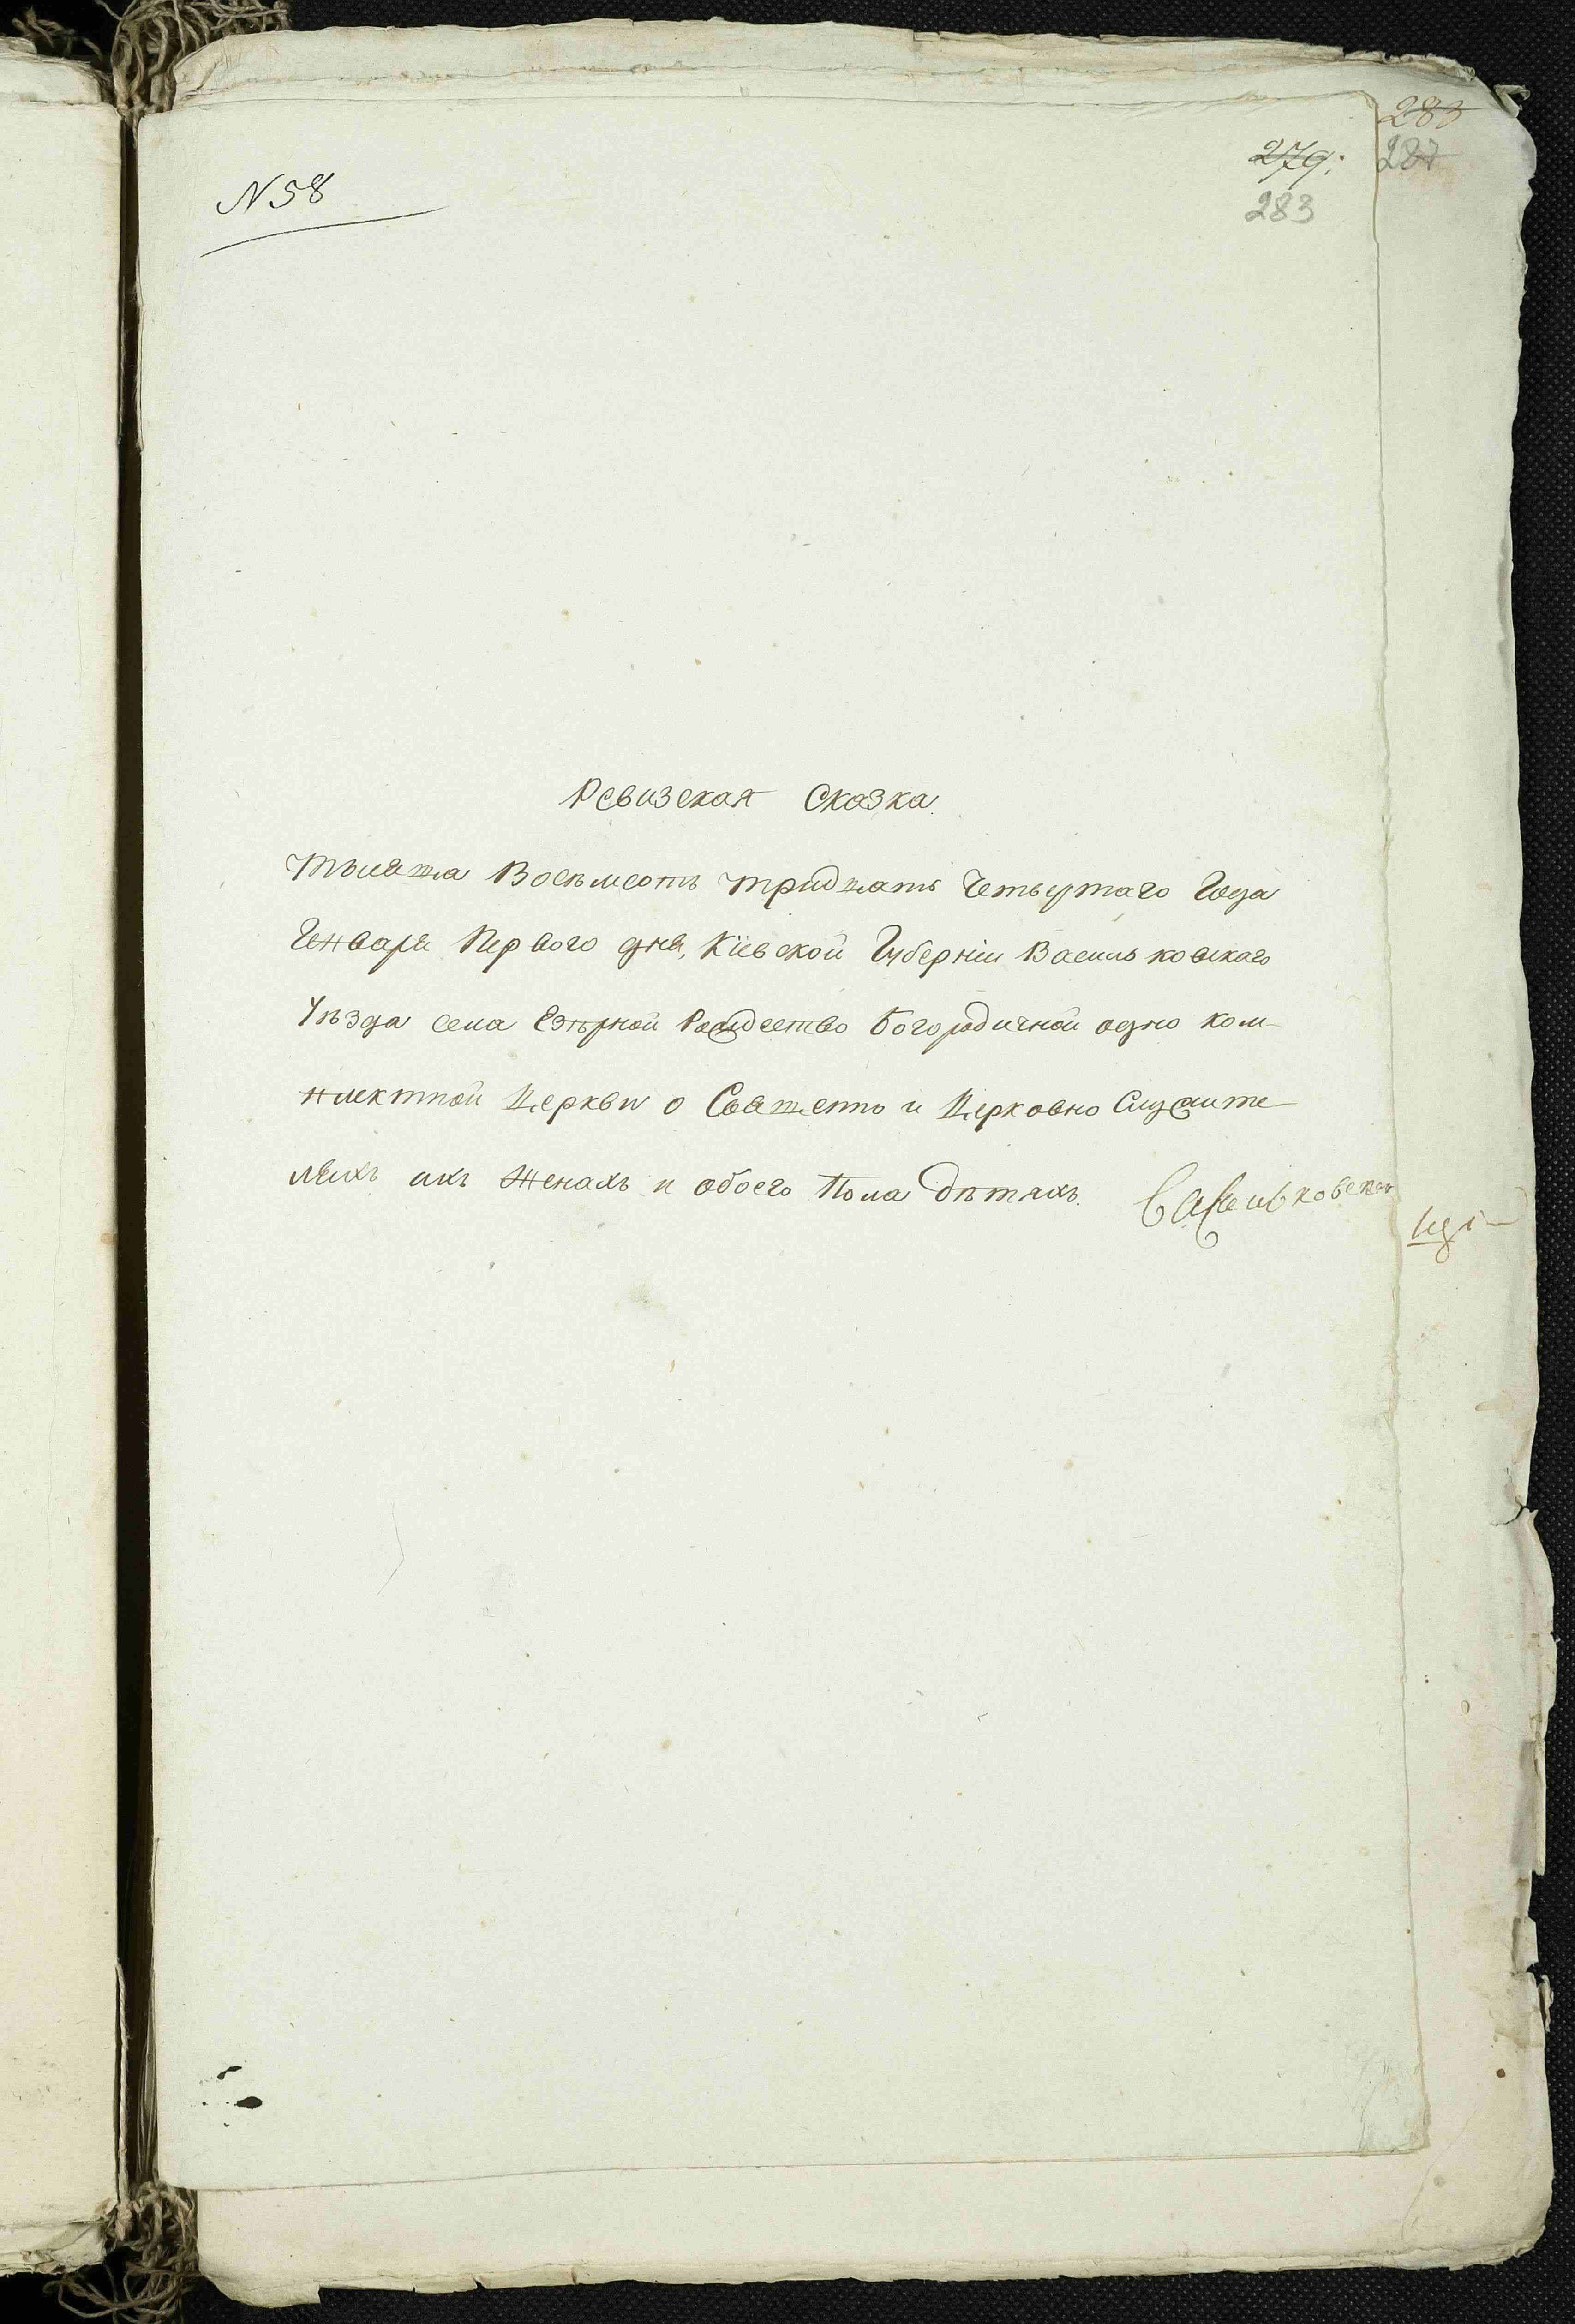 283
279. 287
283
N 58
Ревизская Сказка.
Тысяча Восемьсотъ тридцать Четвертаго Года
Генваря Первого дня, Кіевской Губерніи Васильковскаго
Уѣзда села Езѣрной Рождество Богородичной одно ком-
плектной Церкви о Священно и Церковно Служите
ляхъ ихъ Женахъ и обоего Пола дѣтяхъ. Васильковской